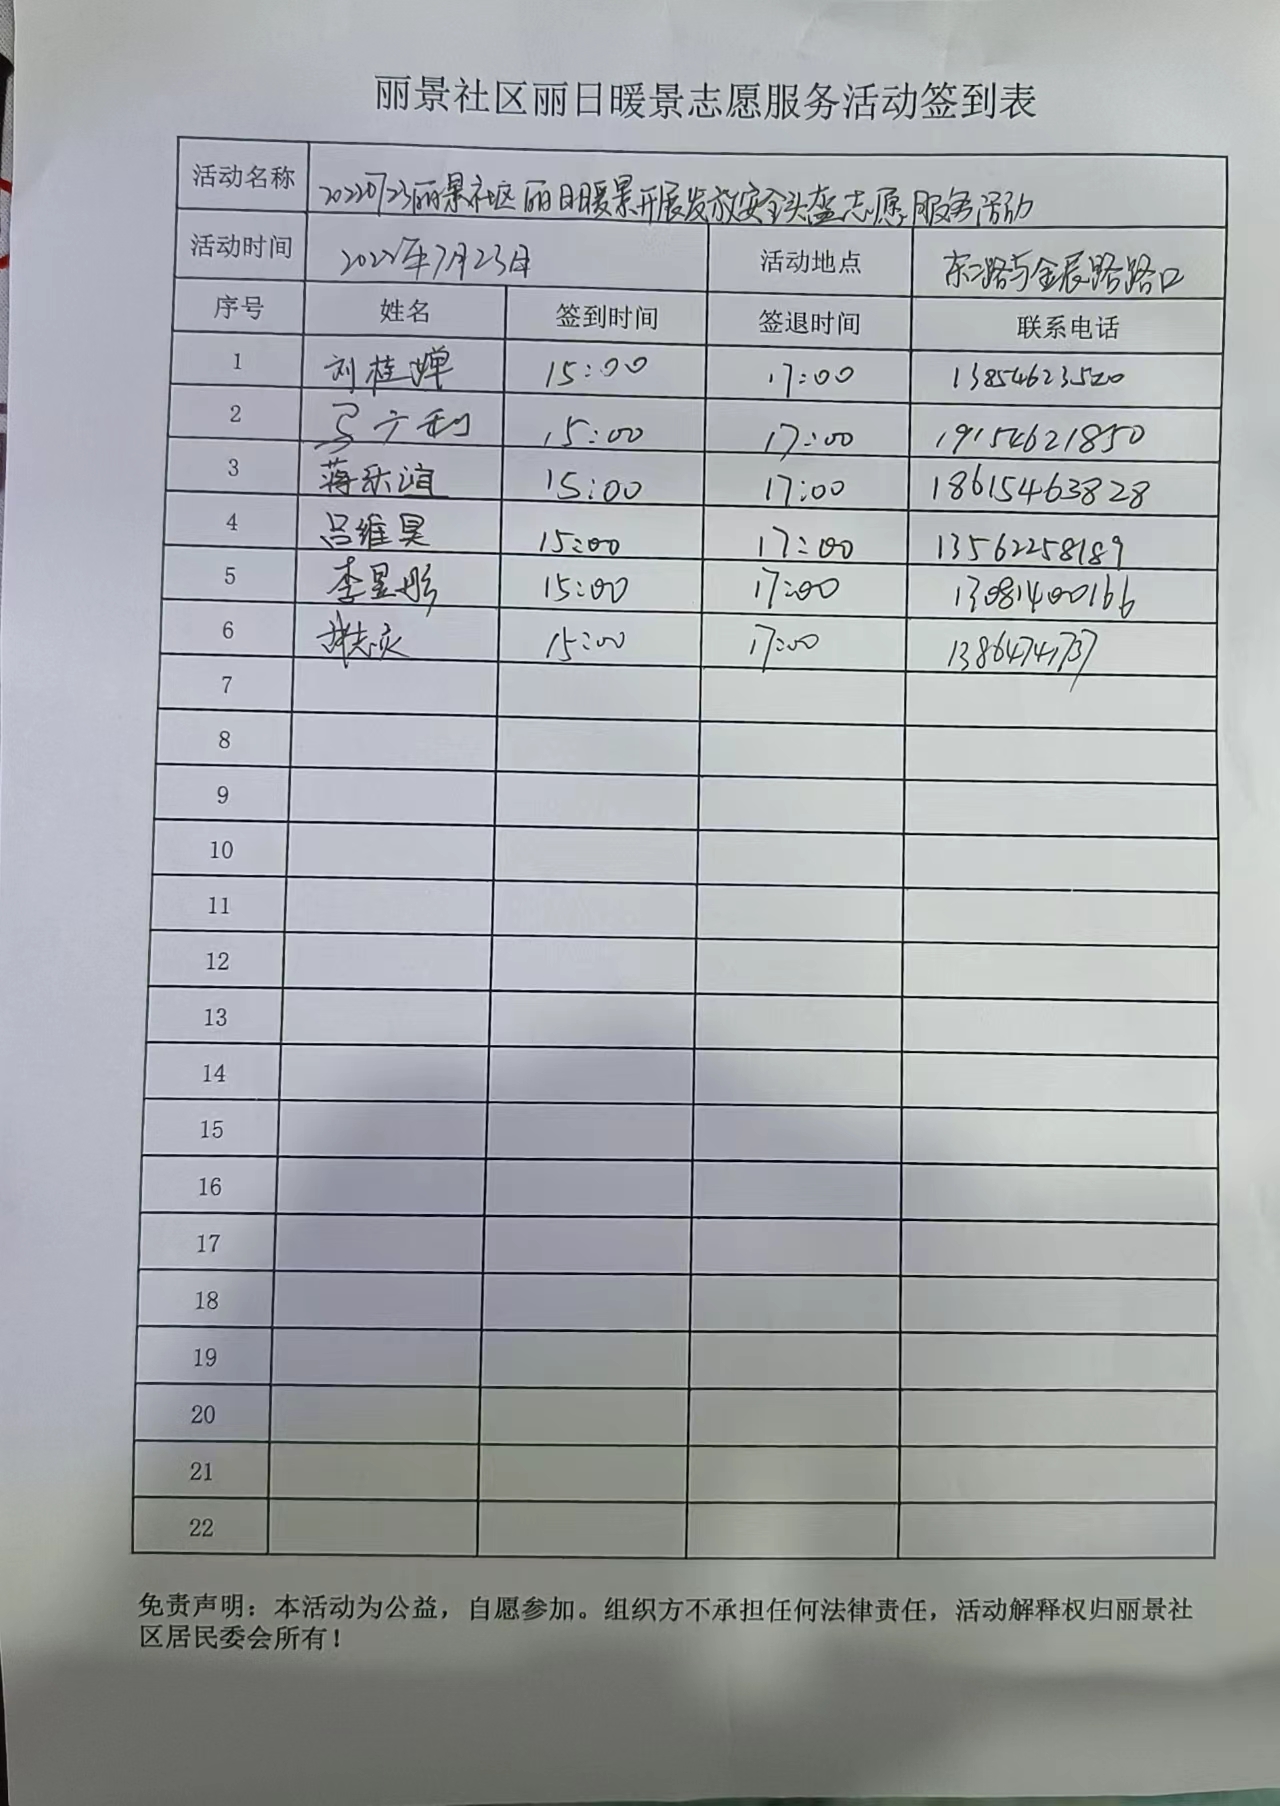 丽景社区丽日暖景志愿服务活动签到表
活动名称 20220723丽景社区丽日暖景开展发放安全头盔志愿服务活动
活动时间 2022年7月23日 活动地点 东二路与金辰路路口
序号 姓名 签到时间 签退时间 联系电话
1 刘桂婵 15:00 17:00 13854623520
2 马广利 15:00 17:00 19154621850
3 蒋乐谊 15:00 17:00 18615463828
4 吕维昊 15:00 17:00 13562258189
5 李昱彤 15:00 17:00 13081400166
6 15:00 17:00
7
8
9
10
11
12
13
14
15
16
17
18
19
20
21
22
免责声明：本活动为公益，自愿参加。组织方不承担任何法律责任，活动解释权归丽景社
区居民委会所有！